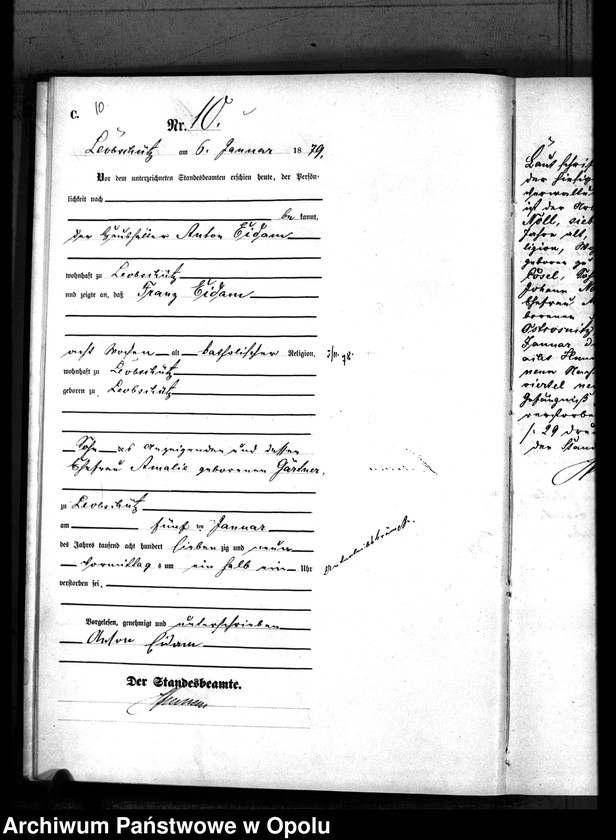 C.
10
Nr. 10.
Leobschütz am 6. Januar 1879.
Vor dem unterzeichneten Standesbeamten erschien heute, der Persön-
lichkeit nach
be kannt,
der Häusler Anton Eidam
wohnhaft zu Leobschütz
und zeigte an, daß Franz Eidam
acht Wochen alt katholischer Religion,
wohnhaft zu Leobschütz
geboren zu Leobschütz
Sohn des Anzeigenden und dessen
Ehefrau Amalie geborenen Gärtner,
zu Leobschütz
am fünf ten Januar
des Jahres tausend acht hundert sieben zig und neun
Vormittag s um ein halb ein Uhr
verstorben sei.
Vorgelesen, genehmigt und unterschrieben
Anton Eidam
Der Standesbeamte.
Laut schrift
der hiesigen
ist der Ar
Noll, sieb
Jahre alt,
ligion, Wo
geboren zu
Cosel, Soh
Johann No
Ehefrau A
borenen
Ostrosnitz
Januar d
viertel ne
Gefängniß
verstorben
29 Dru
der Stan
Archiwum Państwowe w Opolu